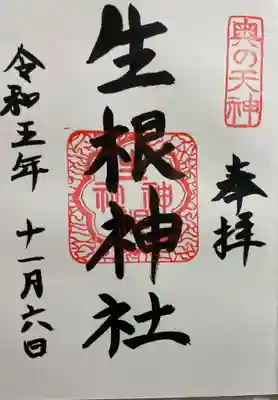 奥の天神
奉拝
生根神社
令和五年 十一月六日